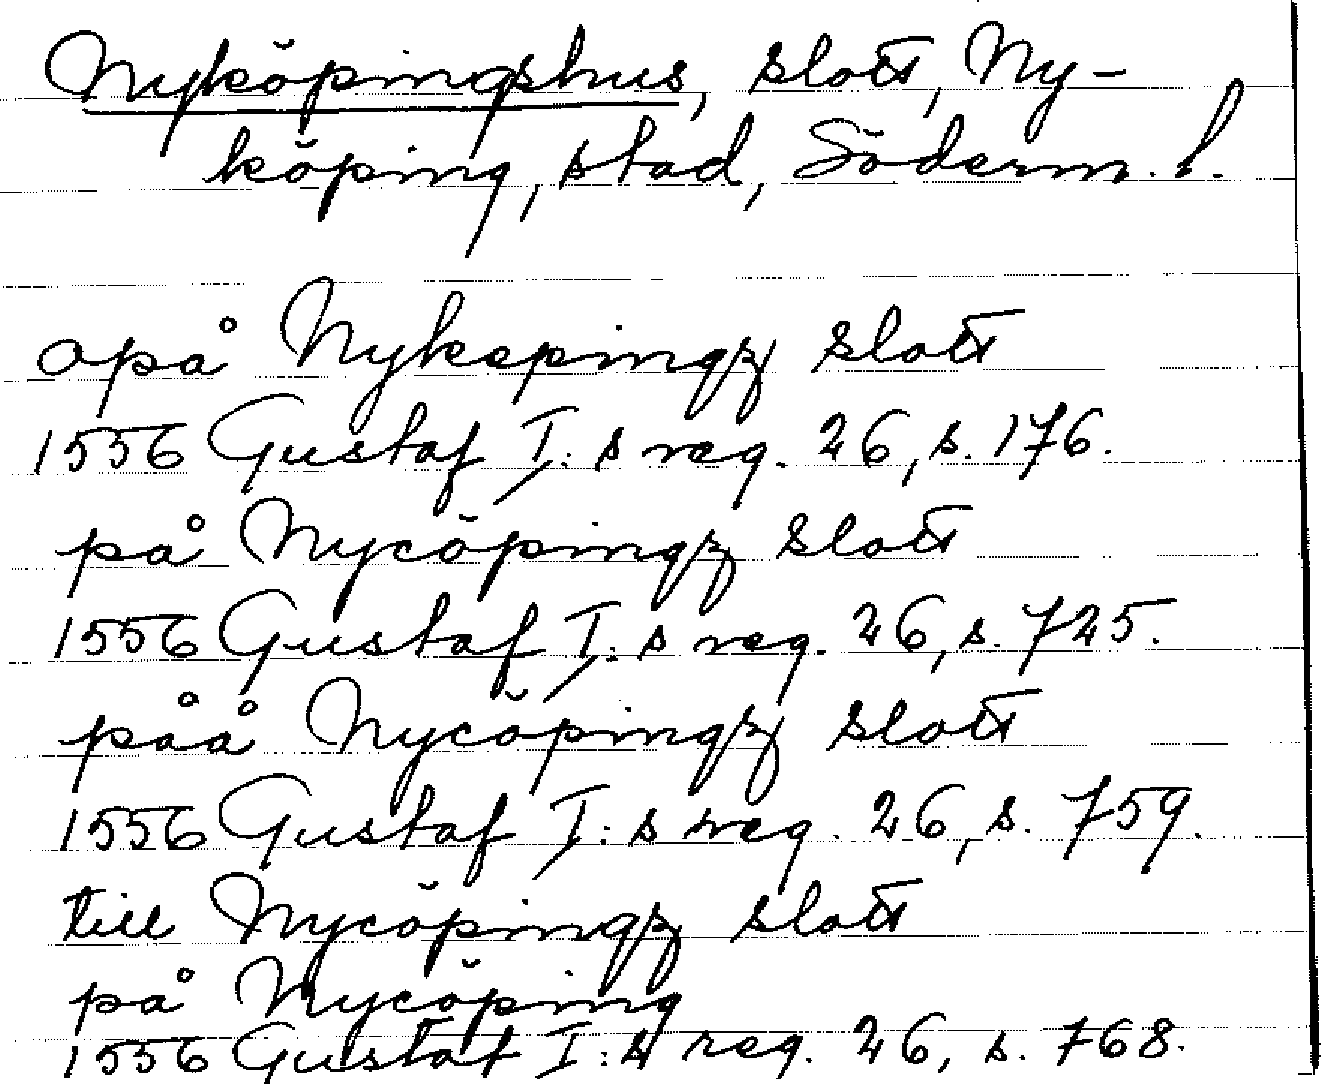 Nyköpingshus, slott, Ny-
köping, stad, Söderm. l.
opå Nykepingz slott
1556 Gustaf I:s reg. 26, s. 176.
på Nycöpingz slott
1556 Gustaf I:s reg. 26, s. 725.
påå Nycöpingz slott
1556 Gustaf I:s reg. 26, s. 759.
till Nycöpingz slott
på Nycöping
1556 Gustaf I:s reg. 26, s. 768.